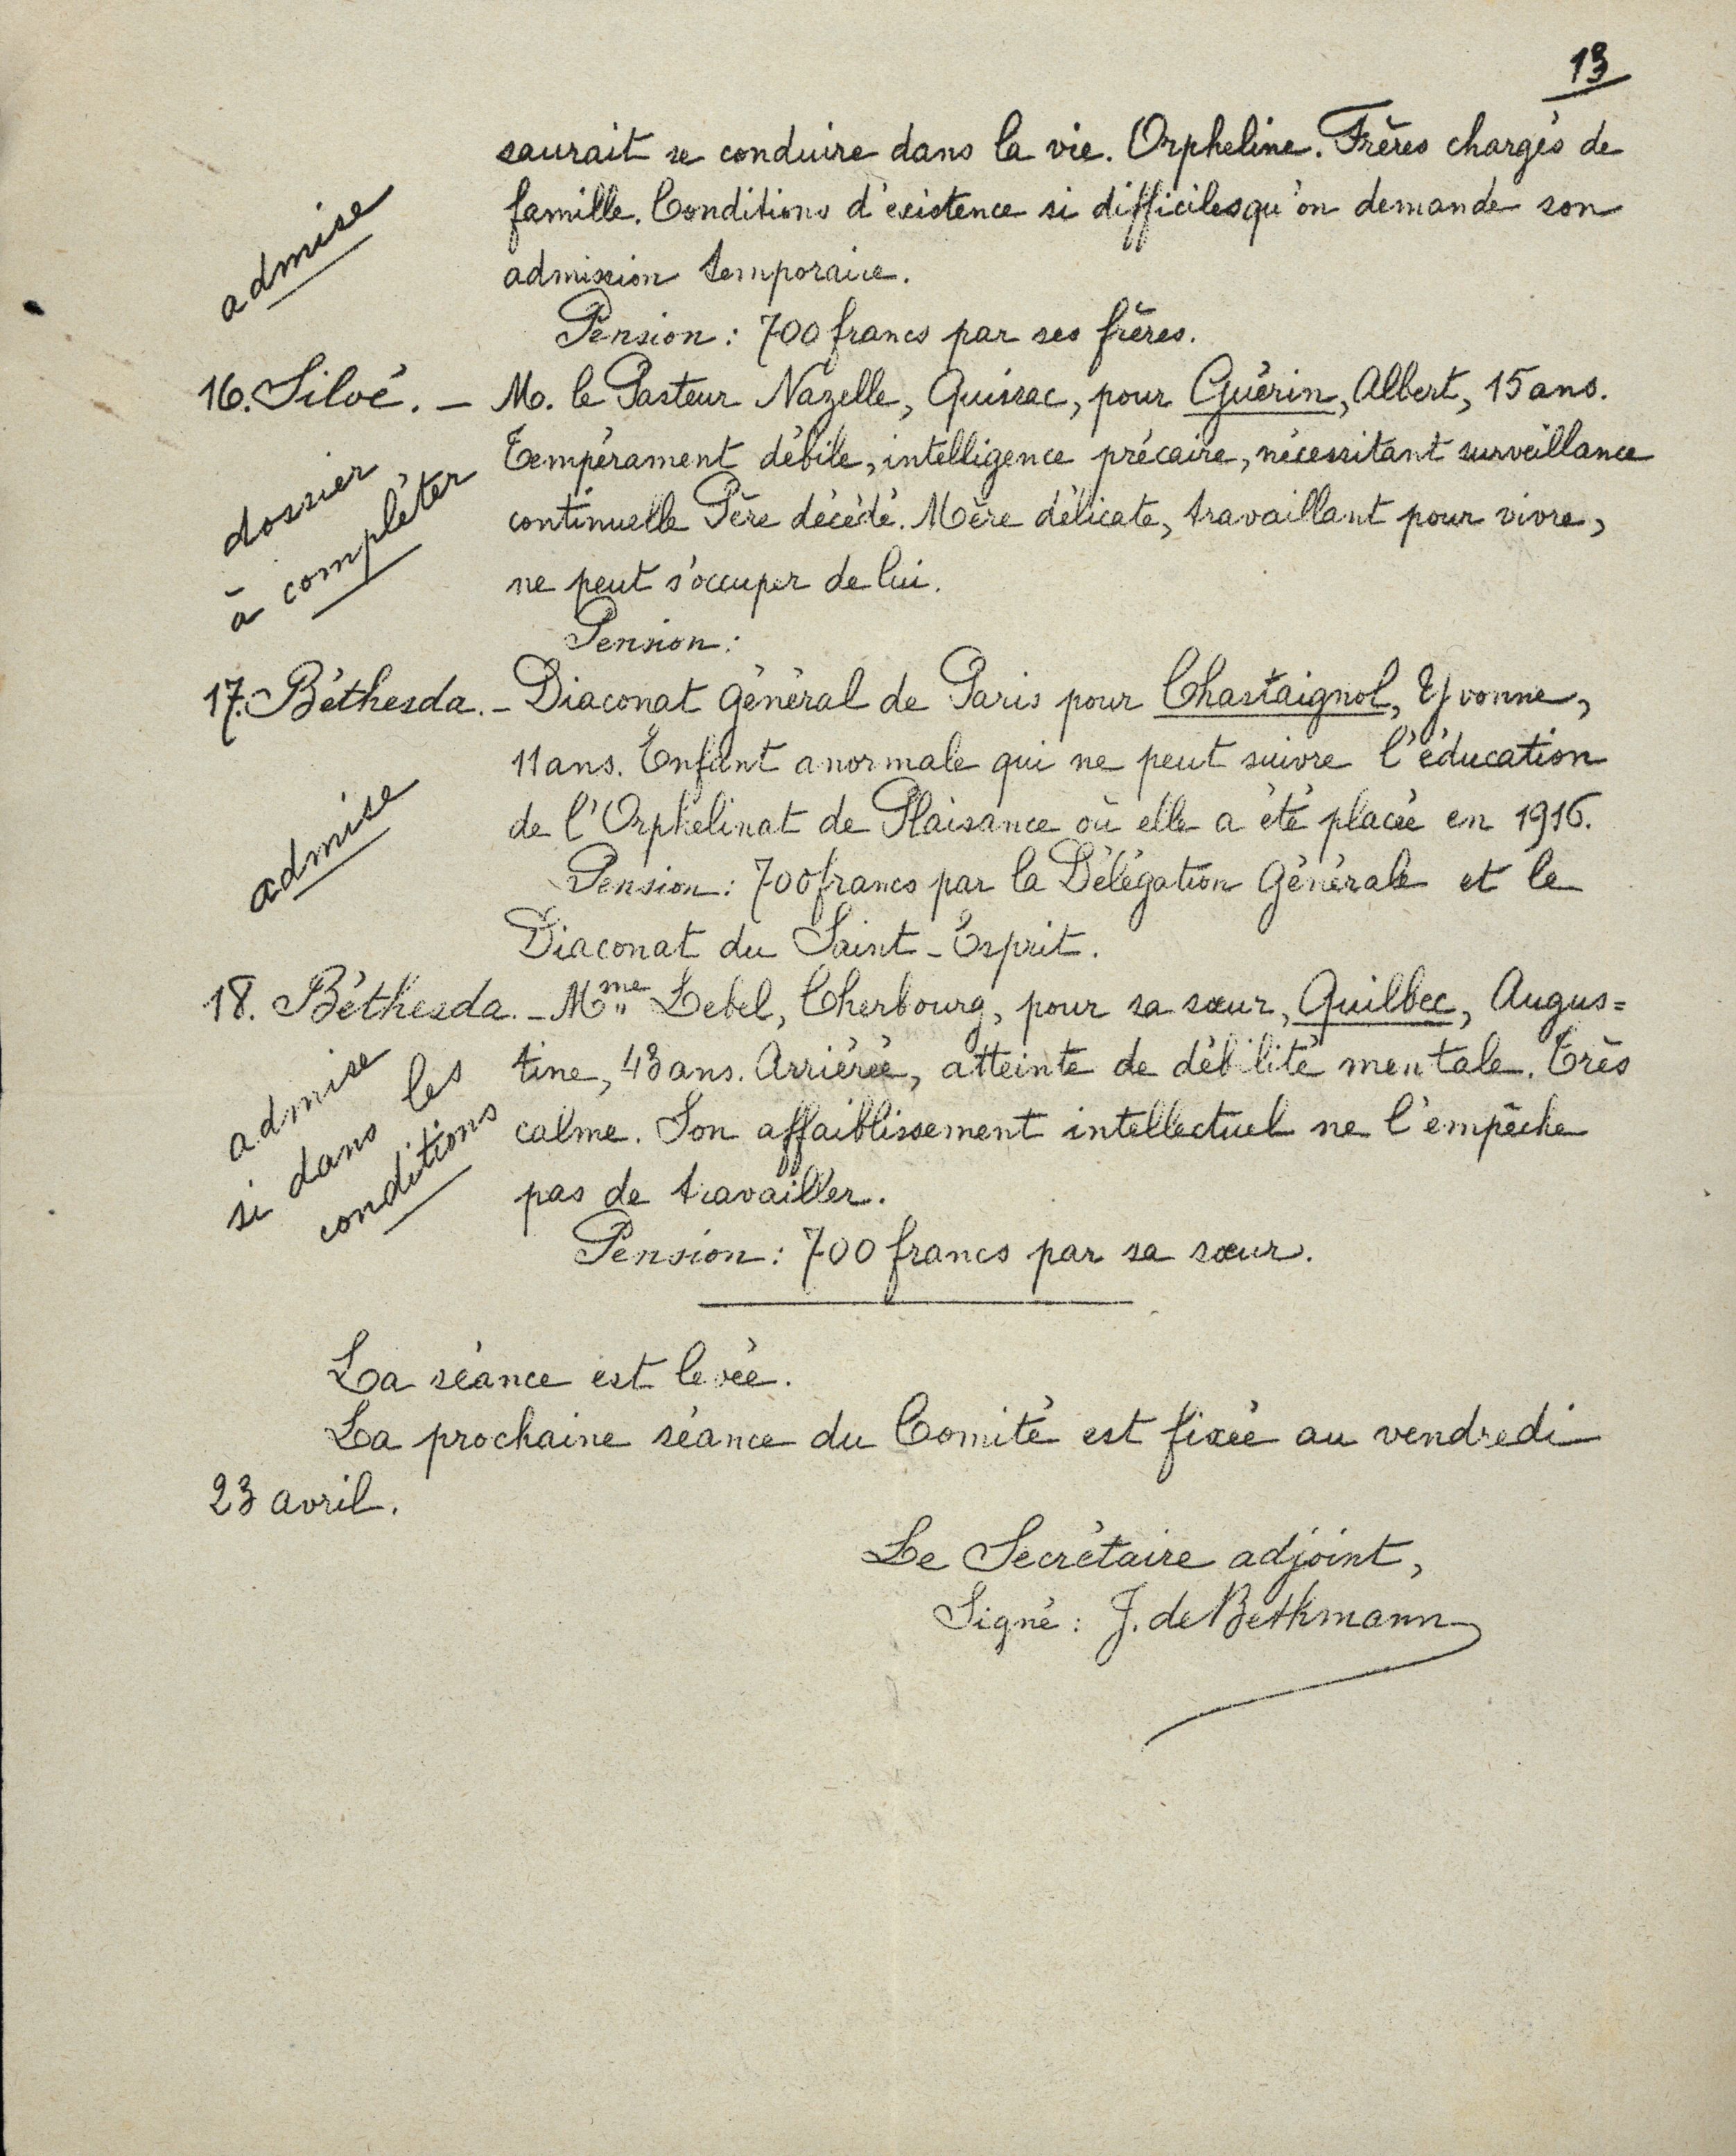 13
saurait se conduire dans la vie. Orpheline. Frères chargés de
famille. Conditions d'existence si difficiles qu'on demande son
admission temporaire.
admise
Pension : 700 francs par ses frères.
16. Siloé. — M. le Pasteur Nazelle, Quissac, pour Guérin, Albert, 15 ans.
Tempérament débile, intelligence précaire, nécessitant surveillance
continuelle Père décédé. Mère délicate, travaillant pour vivre,
ne peut s'occuper de lui.
dossier
à compléter
Pension :
17. Béthesda. — Diaconat Général de Paris pour Chastaignol, Yvonne,
11 ans. Enfant anormale qui ne peut suivre l'éducation
de l'Orphelinat de Plaisance où elle a été placée en 1916.
admise
Pension : 700 francs par la Délégation Générale et le
Diaconat du Saint-Esprit.
18. Béthesda. — Mme Lebel, Cherbourg, pour sa sœur, Quilbec, Augus=
tine, 43 ans. Arriérée, atteinte de débilité mentale. Très
calme. Son affaiblissement intellectuel ne l'empêche
pas de travailler.
admise
si dans les
conditions
Pension : 700 francs par sa sœur.
La séance est levée.
La prochaine séance du Comité est fixée au vendredi
23 avril.
Le Secrétaire adjoint,
Signé : J. de Bethmann